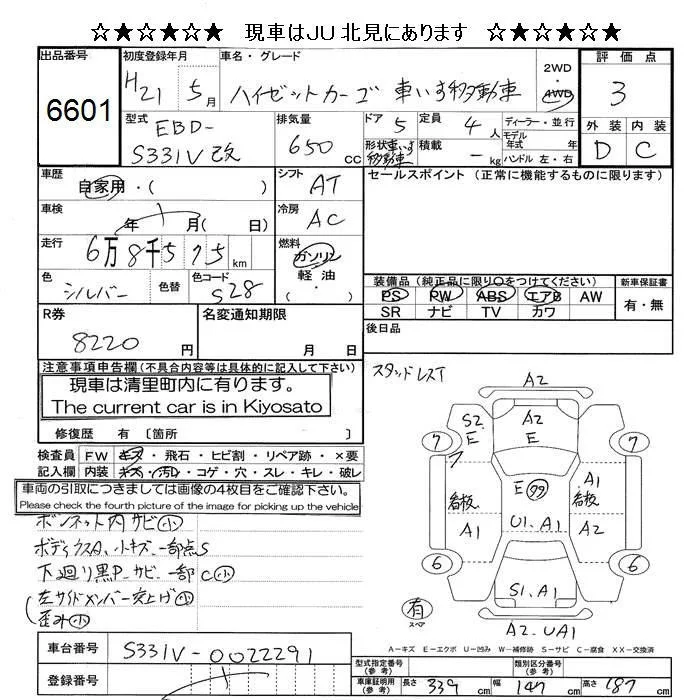 ☆★☆★☆★ 現車はJU北見にあります ☆★☆★☆★
出品番号
6601
初度登録年月
H21年 5月
車名・グレード
ハイゼットカーゴ 車いす移動車
2WD
・
4WD
評価点
3
外装 内装
D C
型式
EBD-
S331V改
排気量
650 cc
ドア 5
形状 車いす移動車
定員 4人
積載 - kg
ディーラー・並行
モデル
年式 年
ハンドル 左・右
車歴
自家用・( )
シフト
AT
セールスポイント(正常に機能するものに限ります)
車検
年 月( 日)
冷房
AC
走行
6万8千575km
燃料
ガソリン
軽油
・( )
色
シルバー
色替
色コード
S28
装備品(純正品に限り○をつけてください)
PS PW ABS エアB AW
SR ナビ TV カワ
新車保証書
有・無
R券
8220円
名変通知期限
月 日
後日品
注意事項申告欄(不具合内容等は具体的に記入して下さい)
現車は清里町内に有ります。
The current car is in Kiyosato
修復歴 有〔箇所 〕
スタッドレスT
検査員 FW キズ・飛石・ヒビ割・リペア跡・×要
記入欄 内装 キズ・汚れ・コゲ・穴・スレ・キレ・破レ
車両の引取につきましては画像の4枚目をご確認下さい。
Please check the fourth picture of the image for picking up the vehicle
ボンネット内サビ小
ボディクスA、小キズ、一部点S
下廻り黒P、サビ、一部C小
左サイドメンバー突上げ小
歪み小
A2
S2
E
A2
E
7
7
E 99
名板
A1
A1
名板
A2
U1、A1
6
6
S1、A1
有
スペア
A2、UA1
A-キズ E-エクボ U-凹み W-補修跡 S-サビ C-腐食 XX-交換済
車台番号
S331V-0022291
登録番号
型式指定番号
(参考)
類別区分番号
(参考)
車庫証明用
(参考)
長さ 339cm 幅 147cm 高さ 187cm